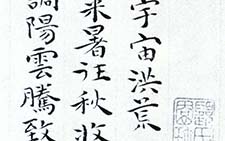 宇宙洪荒
来暑往秋收
調陽雲騰致